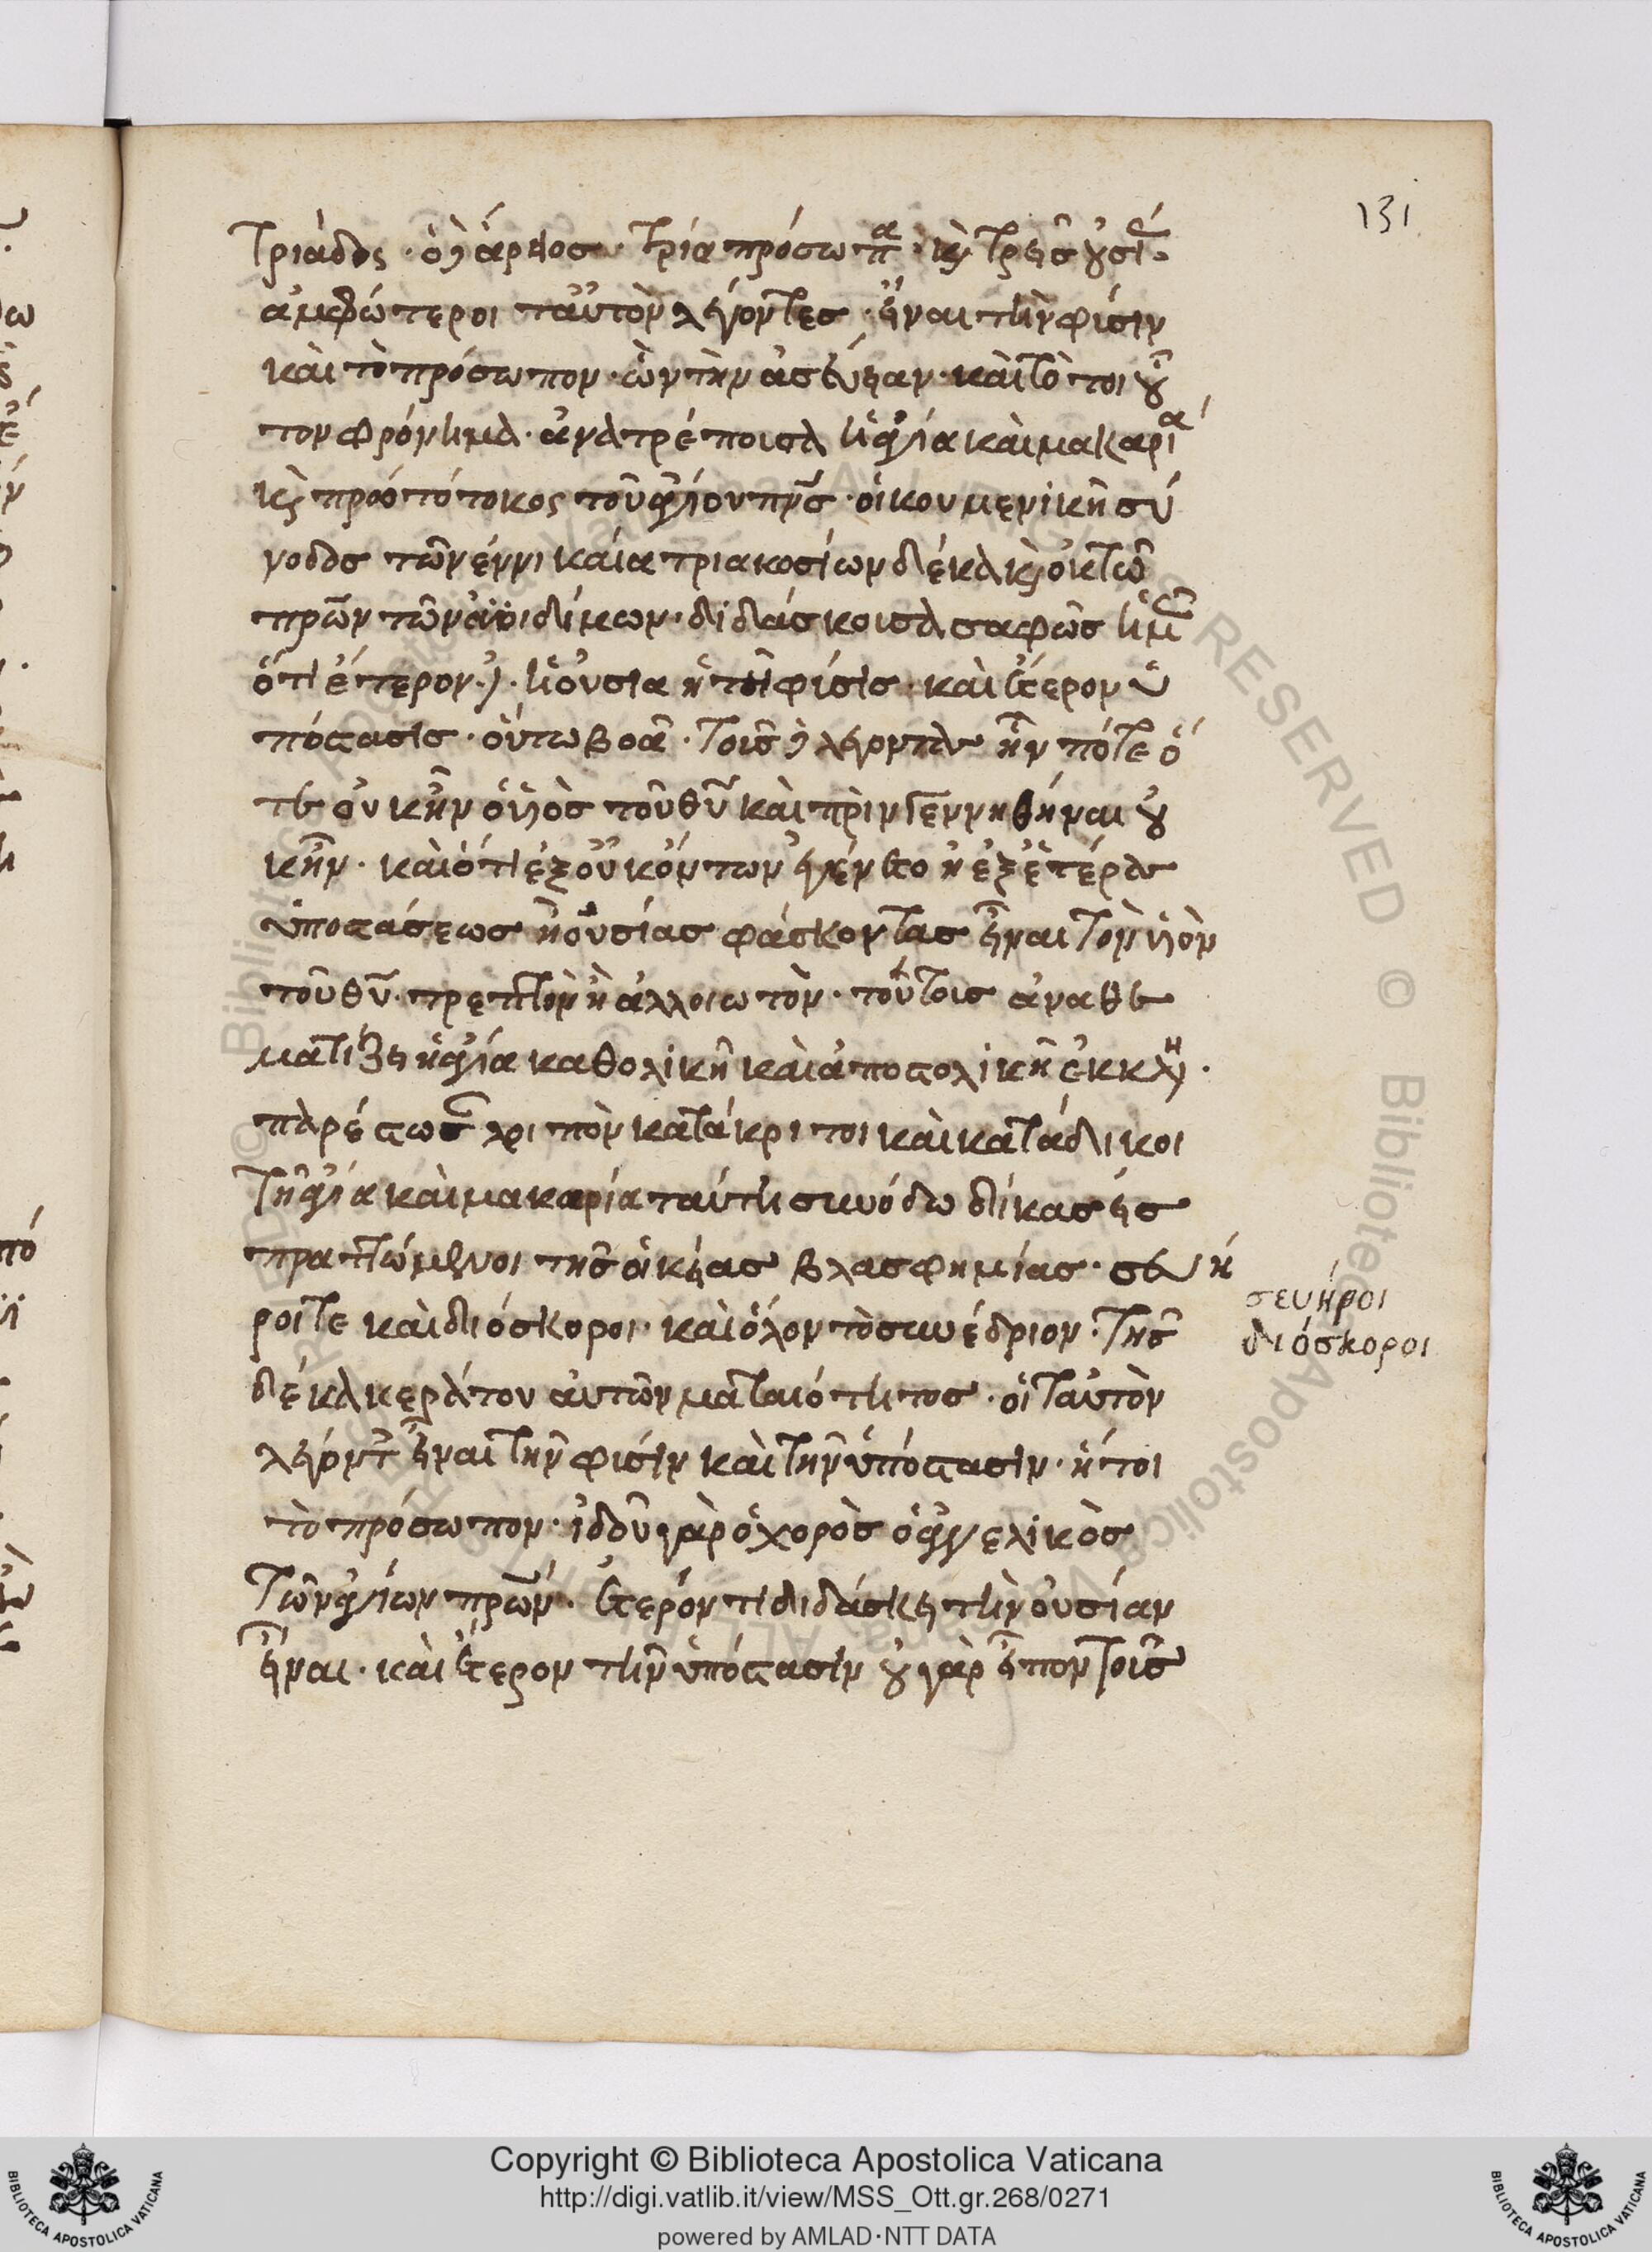 131
τριάδος · ὁ δὲ ἄρειοσ · τρία πρόσωπα · κ τρεῖσ οὐσί
ἀμφώτεροι ταὐτὸν λέγοντεσ · εἶναι τὴν φύσιν
καὶ τὸ πρόσωπον · ὧν τὴν ἀσέβειαν · καὶ τὸ τοιοῦ
τον φρόνημα · ἀνατρέπουσα ἡ ἁγία καὶ μακαρία
κ πρωτότοκος τοῦ ἁγίου πνσ · οἰκουμενικὴ σύ
νοδοσ τῶν ἐννικαία τριακοσίων δέκα κ ὀκτὼ
πρων τῶν ἀοιδίμων · διδάσκουσα σαφῶσ ἡμῖν
ὅτι ἕτερον · ἡ οὐσία ἤτοι φύσις · καὶ ἕτερον ὑ
πόστασις · οὕτω βοᾶ · τοῖσ δὲ λέγοντασ ἦν πότε ὅ
τε οὐκ ἦν ὁ υἱὸσ τοῦ θυ καὶ πρὶν γεννηθῆναι οὐ
κ ἦν · καὶ ὅτι ἐξ οὐκ ὄντων ἐγένετο ἢ ἐξ ἑτέρασ
ὑποστάσεωσ ἢ οὐσίασ φάσκοντασ εἶναι τὸν υἱὸν
τοῦ θυ · τρεπτὸν ἢ ἀλλοιωτὸν · τούτοισ ἀναθε
ματίζει ἡ ἁγία καθολικὴ καὶ ἀποστολικὴ ἐκκλη ·
παρέστωσαν λοιπὸν κατάκριτοι καὶ κατάδικοι
τῆ ἁγία καὶ μακαρία ταύτη συνόδω δίκασ εἰσ
πραττώμενοι τῆσ οἰκείασ βλασφημίασ · σευή
ροί τε καὶ διόσκοροι · καὶ ὅλον τὸ συνέδριον · τῆσ
δέκα κεράτου αὐτῶν ματαιότητοσ · οἱ ταὐτὸν
λέγοντ εἶναι τὴν φύσιν καὶ τὴν ὑπόστασιν · ἤτοι
τὸ πρόσωπον · ἰδοῦ γὰρ ὁ χορὸσ ὁ ἀγγελικὸσ
τῶν ἁγίων πρων · ἕτερόν τι διδάσκει τὴν οὐσίαν
εἶναι · καὶ ἕτερον τὴν ὑπόστασιν οὐ γὰρ εἶπον τοῖσ
σευήροι
διόσκοροι
Copyright © Biblioteca Apostolica Vaticana
http://digi.vatlib.it/view/MSS_Ott.gr.268/0271
powered by AMLAD·NTT DATA
BIBLIOTECA APOSTOLICA VATICANA
BIBLIOTECA APOSTOLICA VATICANA